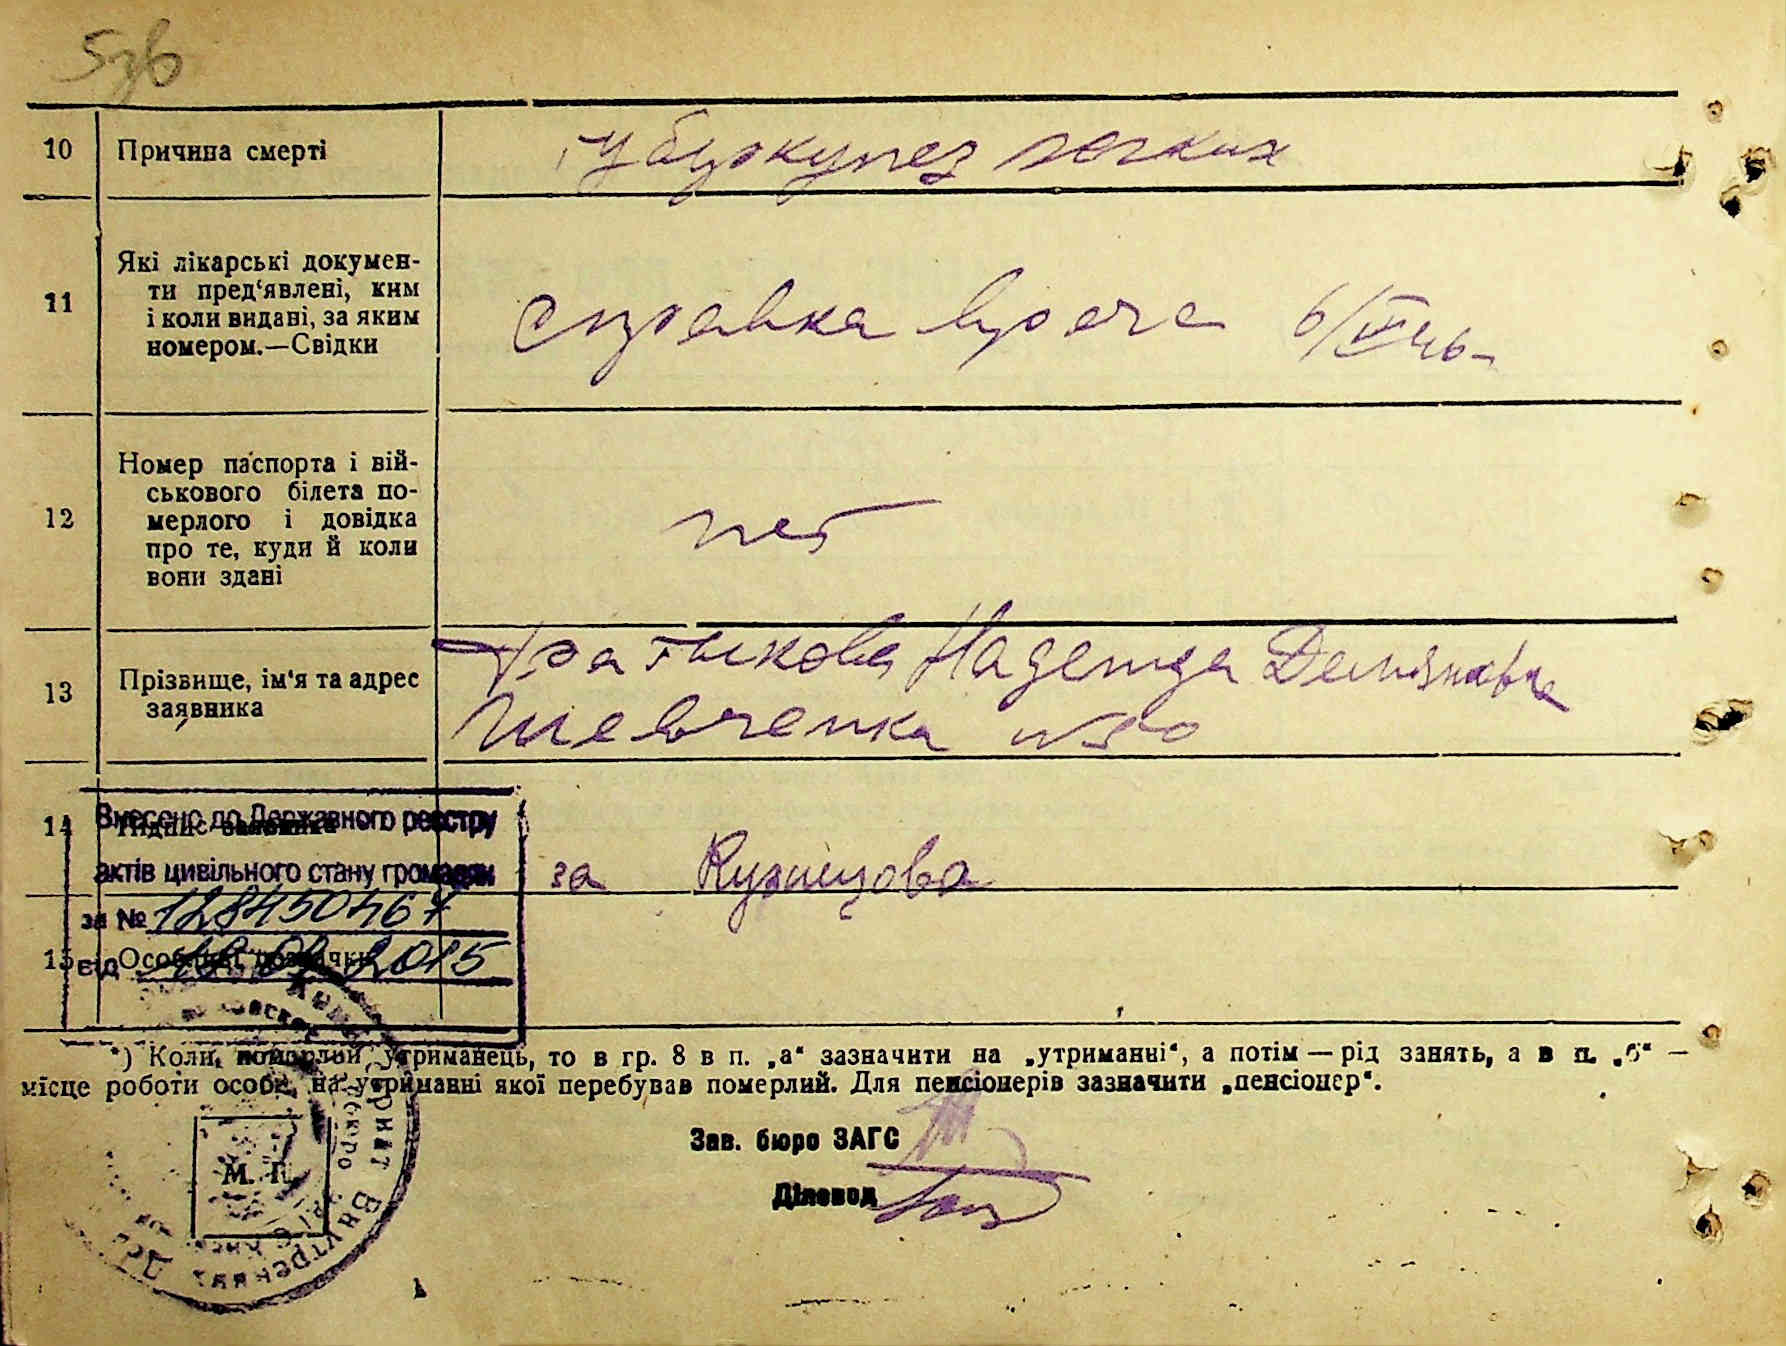 10 Причина смерті туберкулез легких
11 Які лікарські докумен-
ти пред‘явлені, ким
і коли видані, за яким
номером.—Свідки
справка врача 6/VI 46
12 Номер паспорта і вій-
ськового білета по-
мерлого і довідка
про те, куди й коли
вони здані
нет
13 Прізвище, ім‘я та адрес
заявника
Надежда Демьяновна
Шевченка №50
14 Підпис заявника
за Кузнецова
Внесено до Державного реєстру
актів цивільного стану громадян
за № 128450467
від 2015
15 Особливі позначки
*) Коли померлий утриманець, то в гр. 8 в п. „а“ зазначити на „утриманні“, а потім — рід занять, а в п. „б“ —
місце роботи особи, на утриманні якої перебував померлий. Для пенсіонерів зазначити „пенсіонер“.
Зав. бюро ЗАГС
Діловод
М. П.